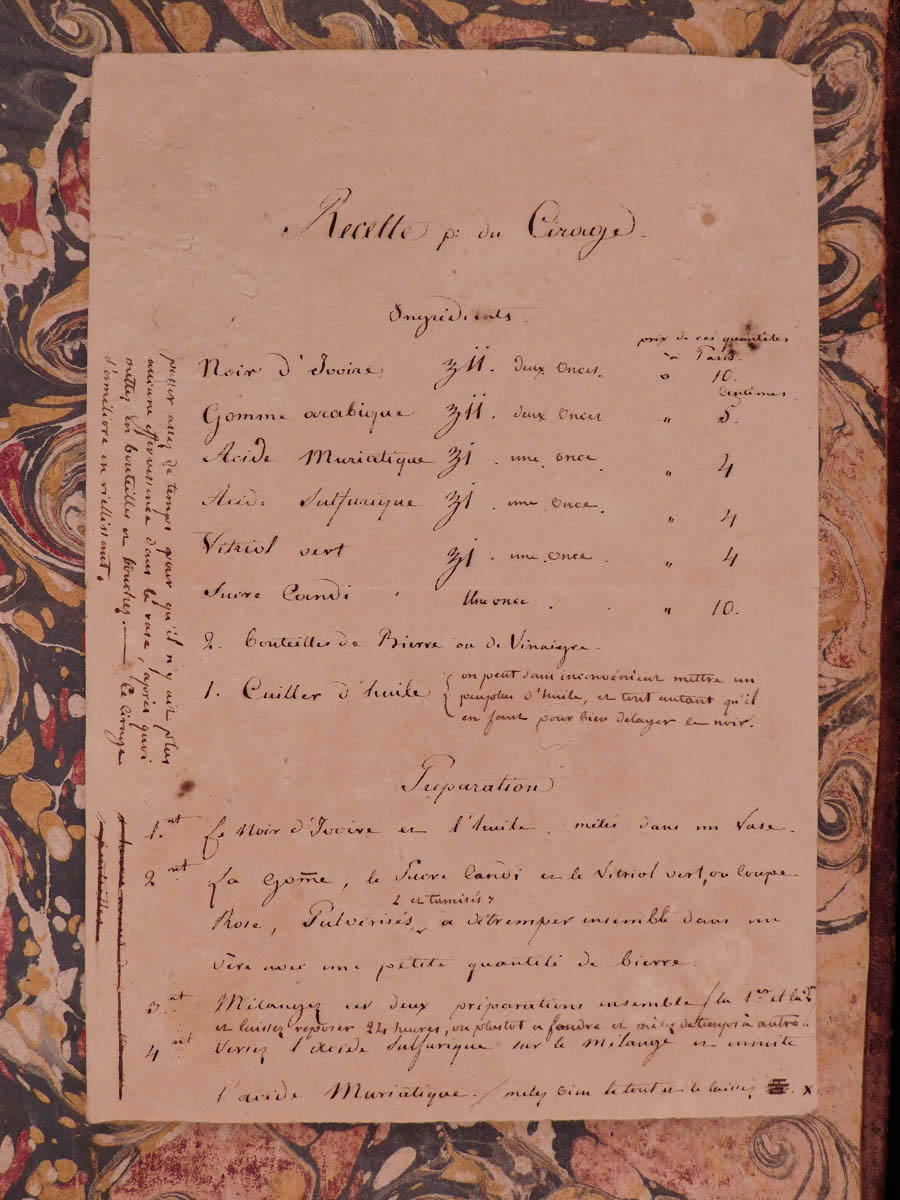 Recette p: du Cirage.
Ingrédients.
prix de ces quantités
à Paris.
Noir d'Ivoire ʒII. deux onces. 10.
Centimes.
Gomme arabique ʒII. deux onces " 5.
Acide Muriatique ʒI. une once " 4
Acide Sulfurique ʒI. une once. " 4
Vitriol vert ʒI. une once " 4
Sucre Candi Une once . . " 10.
2. bouteilles de Bierre ou de Vinaigre.
1. Cuiller d'huile
on peut sans inconvénient mettre un
peu plus d'huile, et tout autant qu'il
en faut pour bien délayer le noir.
Préparation
1.nt Le Noir d'Ivoire et l'huile, mêlés dans un Vase.
2nt La Gom̅e, le Sucre Candi et le Vitriol vert, ou Coupe
et tamisés
Rose, Pulvérisés, à détremper ensemble dans un
vère avec une petite quantité de bierre.
3.nt Mélangez ces deux préparations ensemble / la 1ere et la 2e
et laissez reposer 24 heures, ou plustot a fondre et mêlez de temps à autre
4nt Versez l'acide Sulfurique sur le Mélange et ensuite
l'acide Muriatique. / melez bien le tout et le laissez x
passer assez de temps pour qu'il n'y ait plus
aucune effervessence dans le vase, après quoi
mettez en bouteilles et bouchez. — Ce cirage
s'améliore en viellissant.